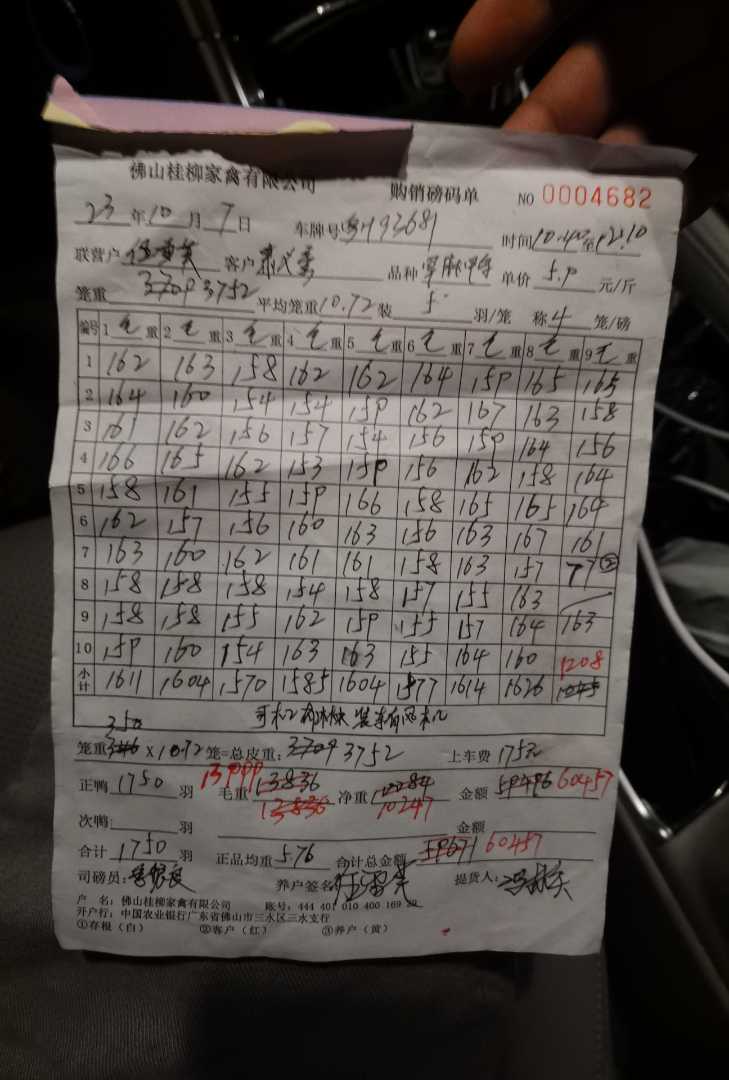 佛山桂柳家禽有限公司 购销磅码单 NO 0004682
23 年 10 月 7 日 车牌号 H93681 时间 10:40 至 12:10
联营户 客户 品种 单价 5.9 元/斤
笼重 3709 3752 平均笼重 10.72 装 5 羽/笼 称 4 笼/磅
编号 1 毛 重 2 毛 重 3 毛 重 4 毛 重 5 毛 重 6 毛 重 7 毛 重 8 毛 重 9 毛 重
1 162 163 158 162 162 164 159 165 165
2 164 160 154 154 159 162 167 163 158
3 161 162 156 157 154 156 159 164 156
4 166 165 162 153 159 156 162 158 164
5 158 161 155 159 166 158 165 165 164
6 162 157 156 160 163 156 163 167 161
7 163 160 162 161 161 158 163 157 77②
8 158 158 158 154 158 157 155 163
9 158 158 155 162 159 155 157 164 163
10 159 160 154 163 163 155 164 160 1208
小计 1611 1604 1570 1585 1604 1577 1614 1626
350
笼重 346 X 10.72 笼=总皮重: 3709 3752 上车费 1752
正鸭 1750 羽 毛重 13999 13836 净重 10284 金额 59496 60457
13836 10247
次鸭: 羽 金额
合计 1750 羽 正品均重 5.76 合计总金额 60457
司磅员: 养户签名 提货人:
户 名: 佛山桂柳家禽有限公司 账号: 444 401 010 400 169
开户行: 中国农业银行广东省佛山市三水区三水支行
①存根(白) ②客户(红) ③养户(黄)